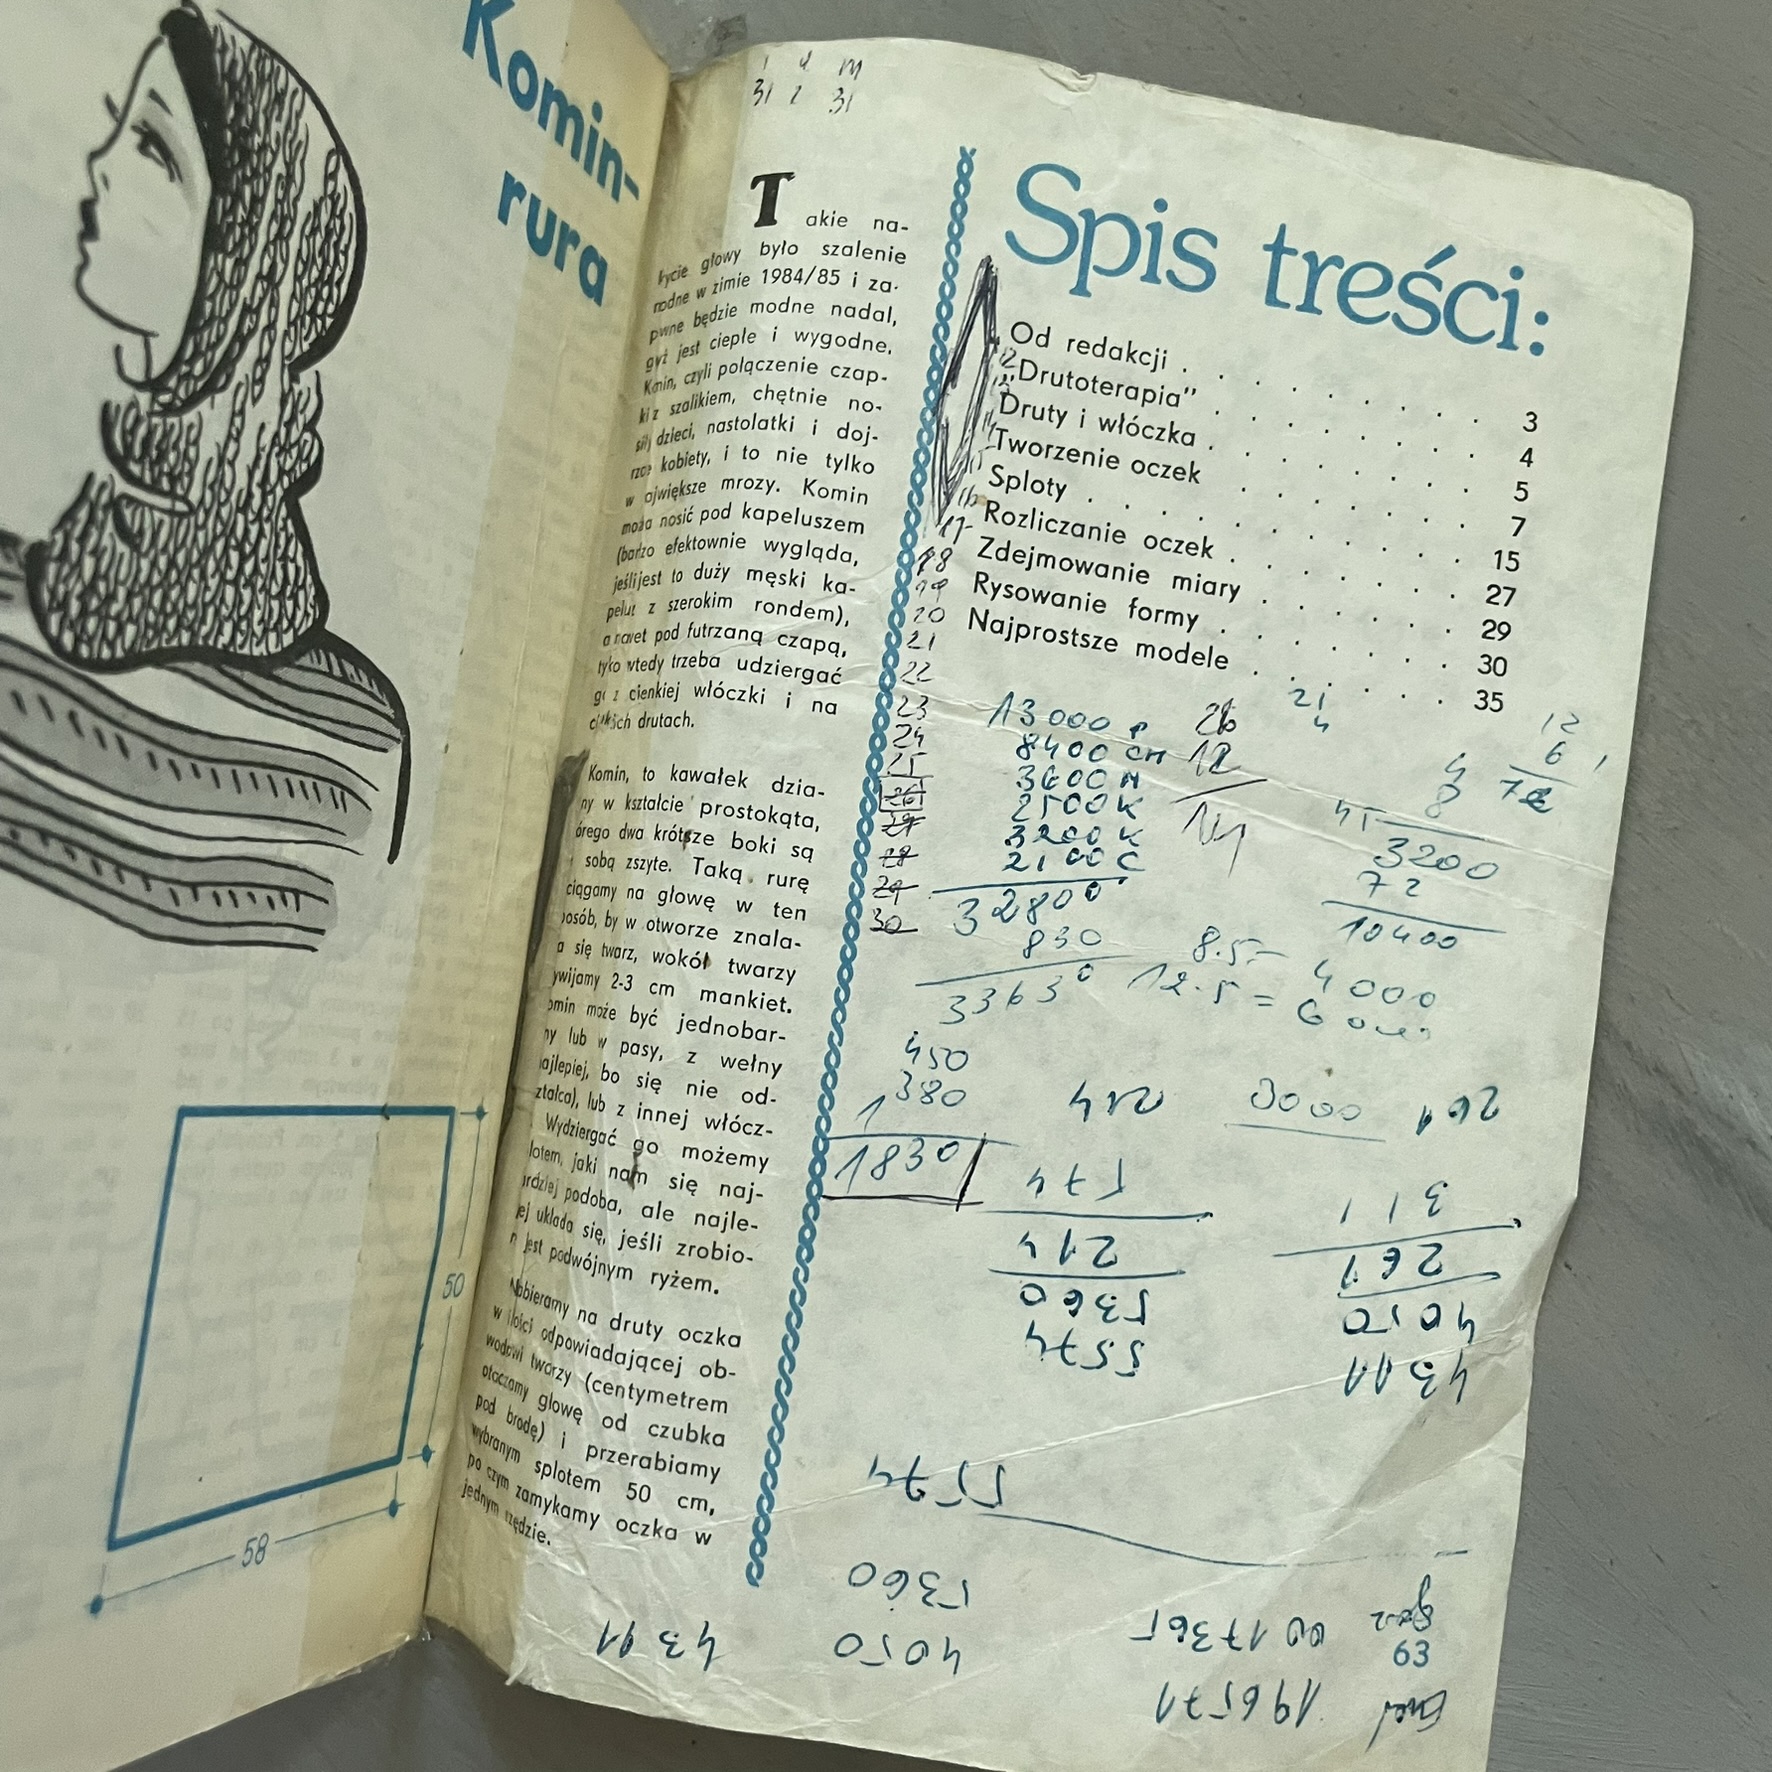 Komin-
rura
50
58
1 2 m
31 2 31
Takie na-
krycie głowy było szalenie
modne w zimie 1984/85 i za-
pewne będzie modne nadal,
gdyż jest ciepłe i wygodne.
Komin, czyli połączenie czap-
ki z szalikiem, chętnie no-
siły dzieci, nastolatki i doj-
rzałe kobiety, i to nie tylko
w największe mrozy. Komin
można nosić pod kapeluszem
(bardzo efektownie wygląda,
jeśli jest to duży męski ka-
pelusz z szerokim rondem),
a nawet pod futrzaną czapą,
tylko wtedy trzeba udziergać
go z cienkiej włóczki i na
cienkich drutach.
Komin, to kawałek dzia-
ny w kształcie prostokąta,
órego dwa krótsze boki są
sobą zszyte. Taką rurę
ciągamy na głowę w ten
posób, by w otworze znala-
a się twarz, wokół twarzy
ywijamy 2-3 cm mankiet.
omin może być jednobar-
ny lub w pasy, z wełny
najlepiej, bo się nie od-
ztałca), lub z innej włócz-
Wydziergać go możemy
lotem, jaki nam się naj-
ardziej podoba, ale najle-
ej układa się, jeśli zrobio-
n jest podwójnym ryżem.
Nabieramy na druty oczka
w ilości odpowiadającej ob-
wodowi twarzy (centymetrem
otaczamy głowę od czubka
pod brodę) i przerabiamy
wybranym splotem 50 cm,
po czym zamykamy oczka w
jednym rzędzie.
Spis treści:
Od redakcji . . . . . . . . . 3
„Drutoterapia" . . . . . . . . 4
Druty i włóczka . . . . . . . . 5
Tworzenie oczek . . . . . . . 7
Sploty . . . . . . . . . . 15
Rozliczanie oczek . . . . . . . 27
Zdejmowanie miary . . . . . . 29
Rysowanie formy . . . . . . . 30
Najprostsze modele . . . . . . 35
17
18
19
20
21
22
23
24
25
26
27
28
29
30
13000 P
8400 CH
3600 N
2500 K
3200 K
2100 C
32800
830
33630
26
12
21
4
12
6
72
4
8
3200
72
10400
8.5 =
4000
12.5 =
450
1380
1830
214
3000
261
574
214
5360
5574
311
261
4050
4311
5574
5360
4050
4311
0017365
gaz
E9
196571